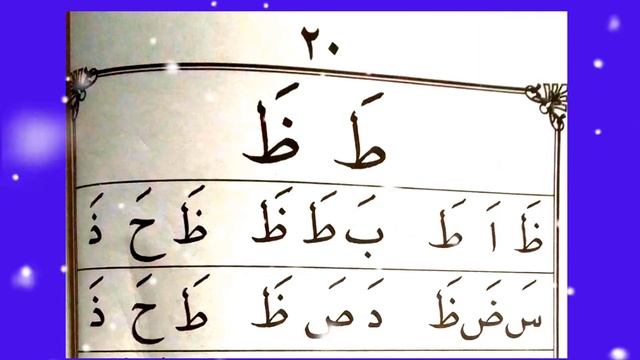 ٢٠
طَ ظَ
ظَ اَ طَ بَ طَ ظَ ظَ حَ ذَ
سَ ضَ ظَ دَ صَ ظَ طَ حَ ذَ